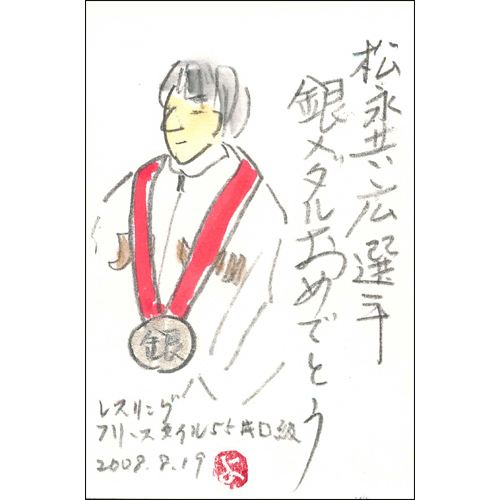 松永共広選手
銀メダルおめでとう
銀
レスリング
フリースタイル55キロ級
2008.8.19